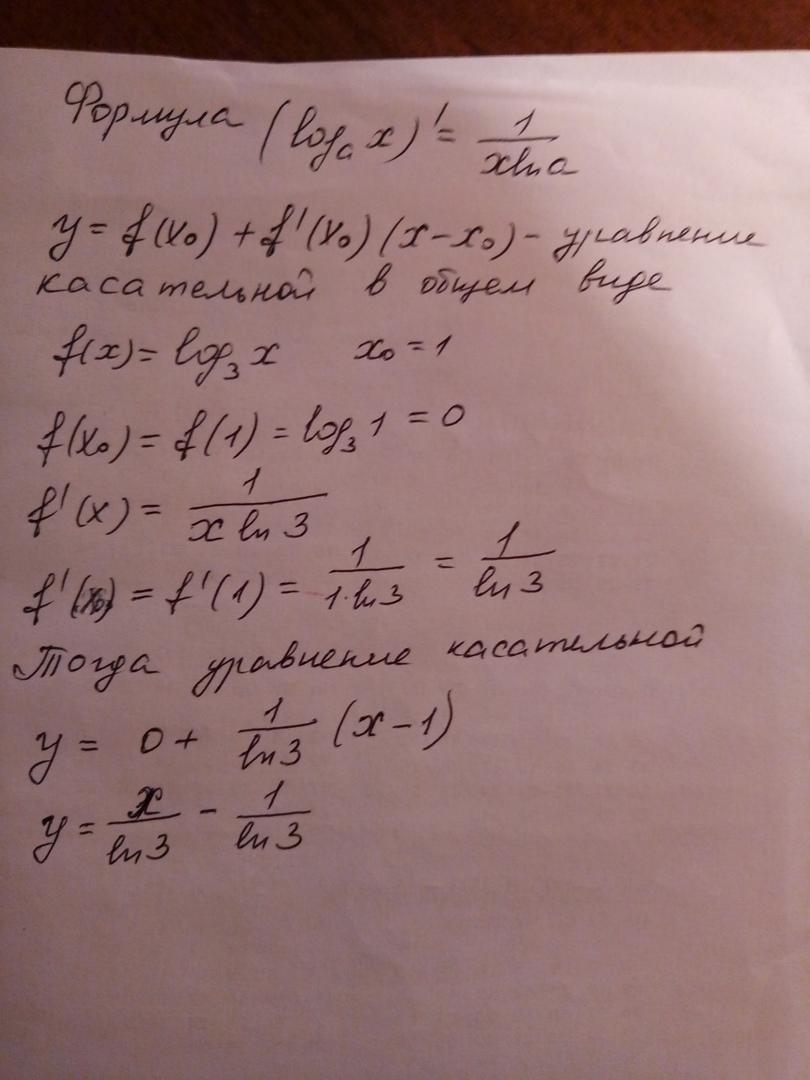 Формула (logₐ x)' = 1/(x ln a)
y = f(x₀) + f'(x₀)(x - x₀) - уравнение
касательной в общем виде
f(x) = log₃ x x₀ = 1
f(x₀) = f(1) = log₃ 1 = 0
f'(x) = 1/(x ln 3)
f'(x₀) = f'(1) = 1/(1·ln 3) = 1/(ln 3)
Тогда уравнение касательной
y = 0 + 1/(ln 3) (x - 1)
y = x/(ln 3) - 1/(ln 3)